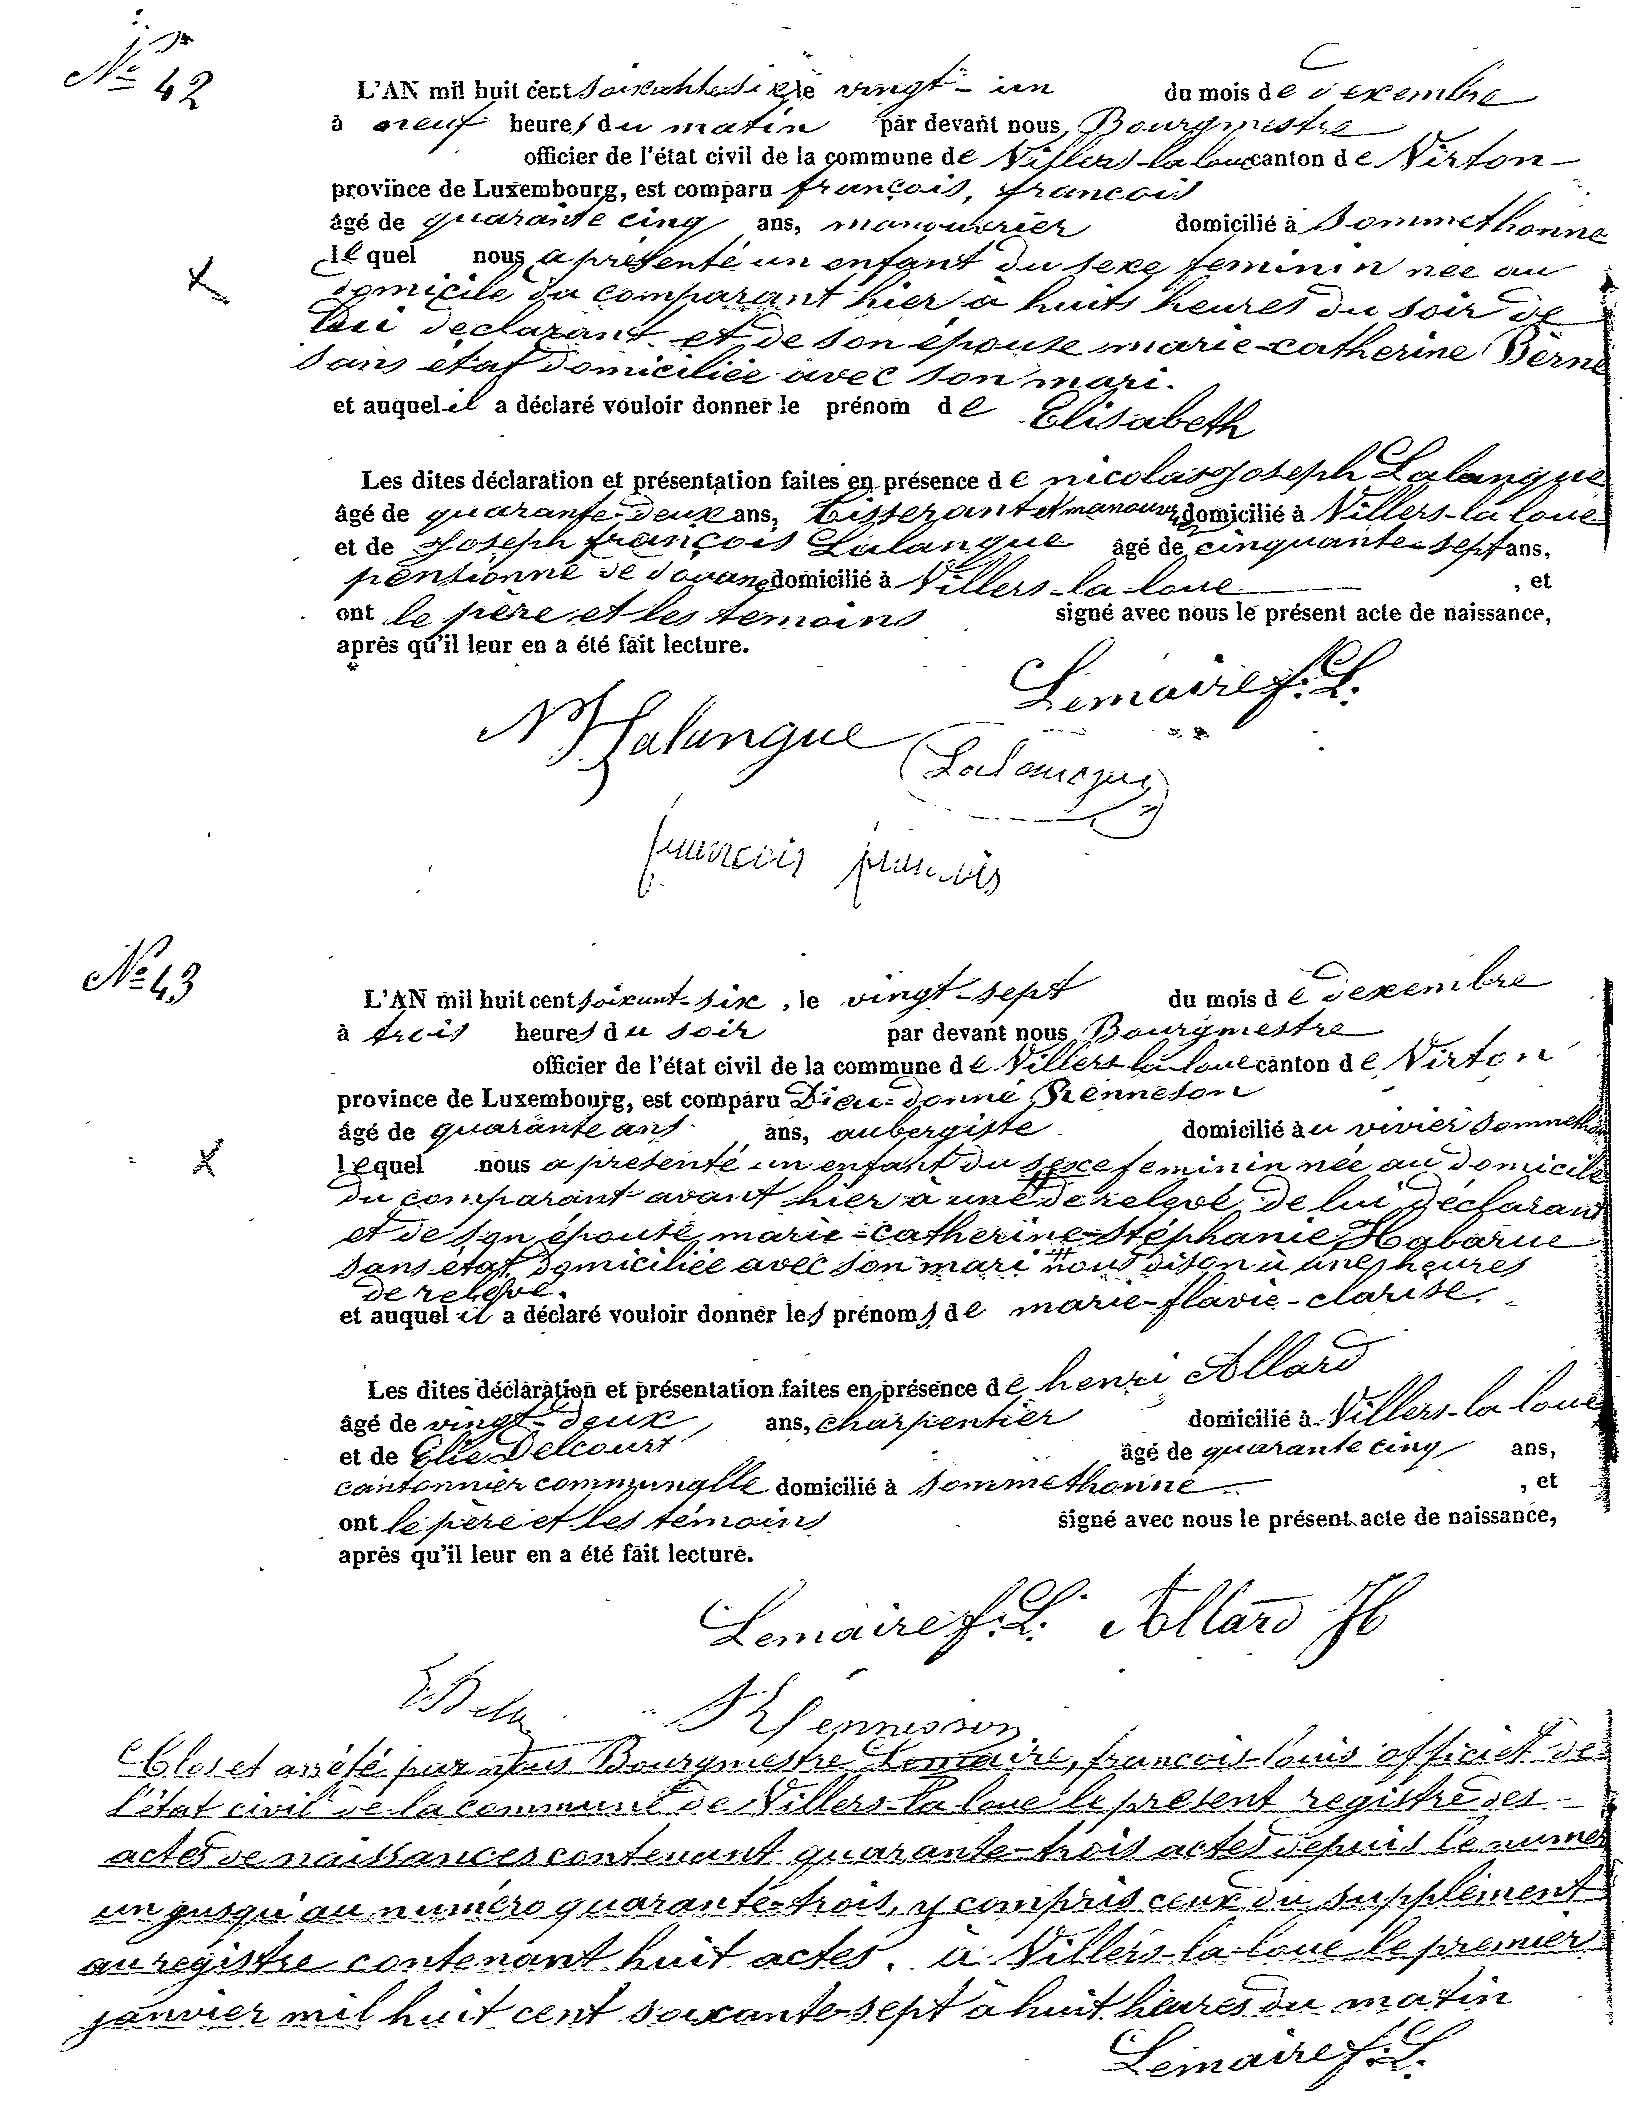 Nº 42
L'AN mil huit cent soixante six le vingt-un du mois de decembre
à neuf heures du matin par devant nous Bourgmestre
officier de l'état civil de la commune de Villers-la-loue canton de Virton
province de Luxembourg, est comparu françois, francois
âgé de quarante cinq ans, manouvrier domicilié à Sommethonne
lequel nous a présenté un enfant du sexe feminin née au
domicile du comparant hier à huits heures du soir de
lui declarant et de son épouse marie-catherine Berne
sans état domiciliée avec son mari.
et auquel il a déclaré vouloir donner le prénom de Elisabeth
Les dites déclaration et présentation faites en présence de nicolas Joseph Lalangue
âgé de quarante-deux ans, tisserant et manouvr domicilié à Villers-la loue
et de Joseph françois Lalangue âgé de cinquante-sept ans,
pensionné de douane domicilié à Villers-la-loue , et
ont le père et les temoins signé avec nous le présent acte de naissance,
après qu'il leur en a été fait lecture.
Lemaire f. L.
NJ Lalangue
Lalangue
francois francois
Nº 43
L'AN mil huit cent soixant-six , le vingt-sept du mois de decembre
à trois heures du soir par devant nous Bourgmestre
officier de l'état civil de la commune de Villers-la-loue canton de Virton
province de Luxembourg, est comparu Dieu-donné Renneson
âgé de quarante ans ans, aubergiste domicilié au vivier Sommethon
lequel nous a présenté un enfant du sexe feminin née au domicile
du comparant avant hier à une de relevé de lui déclarant
et de son épouse marie-catherine-Stéphanie Habarue
sans état domiciliée avec son mari # nous dison à une heures
de relevé.
et auquel il a déclaré vouloir donner les prénoms de marie-flavie-clarise.
Les dites déclaration et présentation faites en présence de henri Allard
âgé de vingt-deux ans, charpentier domicilié à Villers-la loue
et de Elie Delcourt âgé de quarante cinq ans,
cantonnier communalle domicilié à Sommethonne , et
ont le père et les témoins signé avec nous le présent acte de naissance,
après qu'il leur en a été fait lecture.
Lemaire f. L. Allard H
Rennesson
Clos et arrêté par nous Bourgmestre Lemaire, francois louis officier de
l'état civil de la commune de Villers-la loue le present registre des
actes de naissances contenant quarante-trois actes depuis le numer
un jusqu'au numéro quarante-trois, y compris ceux du supplément
au registre contenant huit actes. à Villers-la-loue le premier
janvier mil huit cent soixante-sept à huit heures du matin
Lemaire f. L.